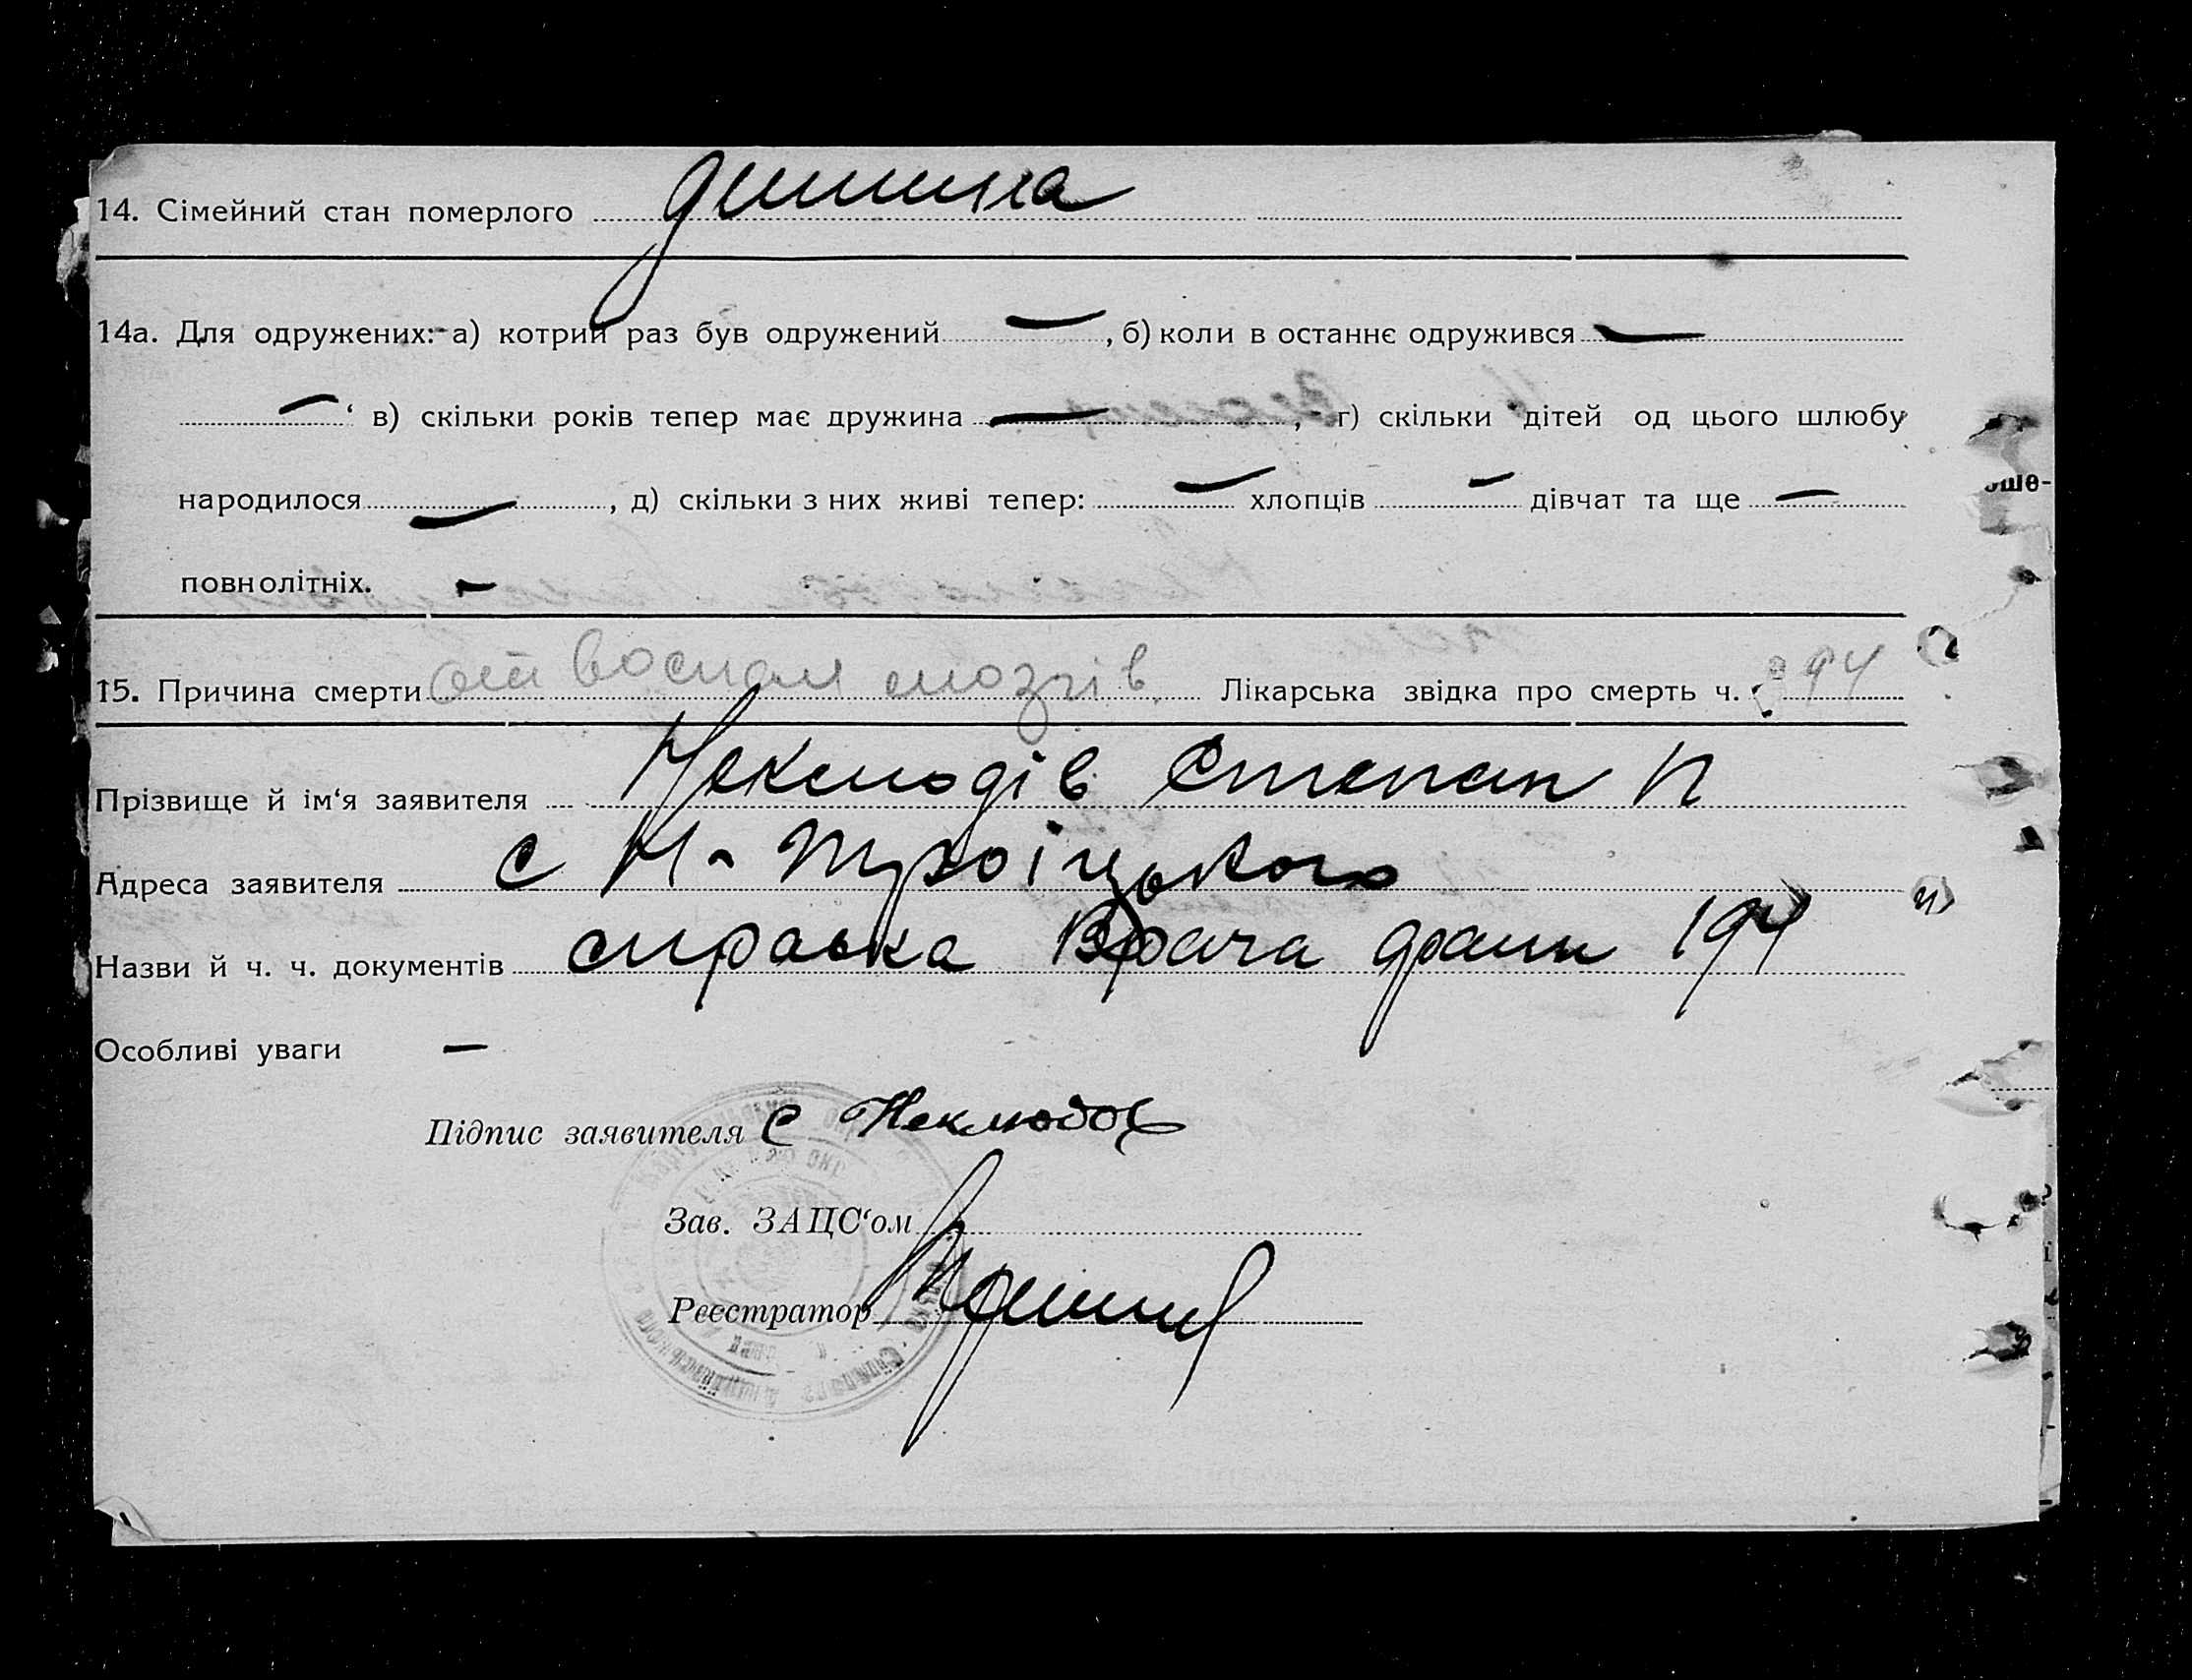 14. Сімейний стан померлого дитина
14а. Для одружених: а) котрий раз був одружений — , б) коли в останнє одружився —
— ‘ в) скільки років тепер має дружина — , г) скільки дітей од цього шлюбу
народилося — , д) скільки з них живі тепер: — хлопців — дівчат та ще —
повнолітніх. —
15. Причина смерти от воспал мозгів Лікарська звідка про смерть ч. 194
Прізвище й ім‘я заявителя Неклюдів Степан П
Адреса заявителя с Н-Троіцького
Назви й ч. ч. документів справка Врача 194
Особливі уваги —
Підпис заявителя С Неклюдов
Зав. ЗАЦС‘ом
Реєстратор